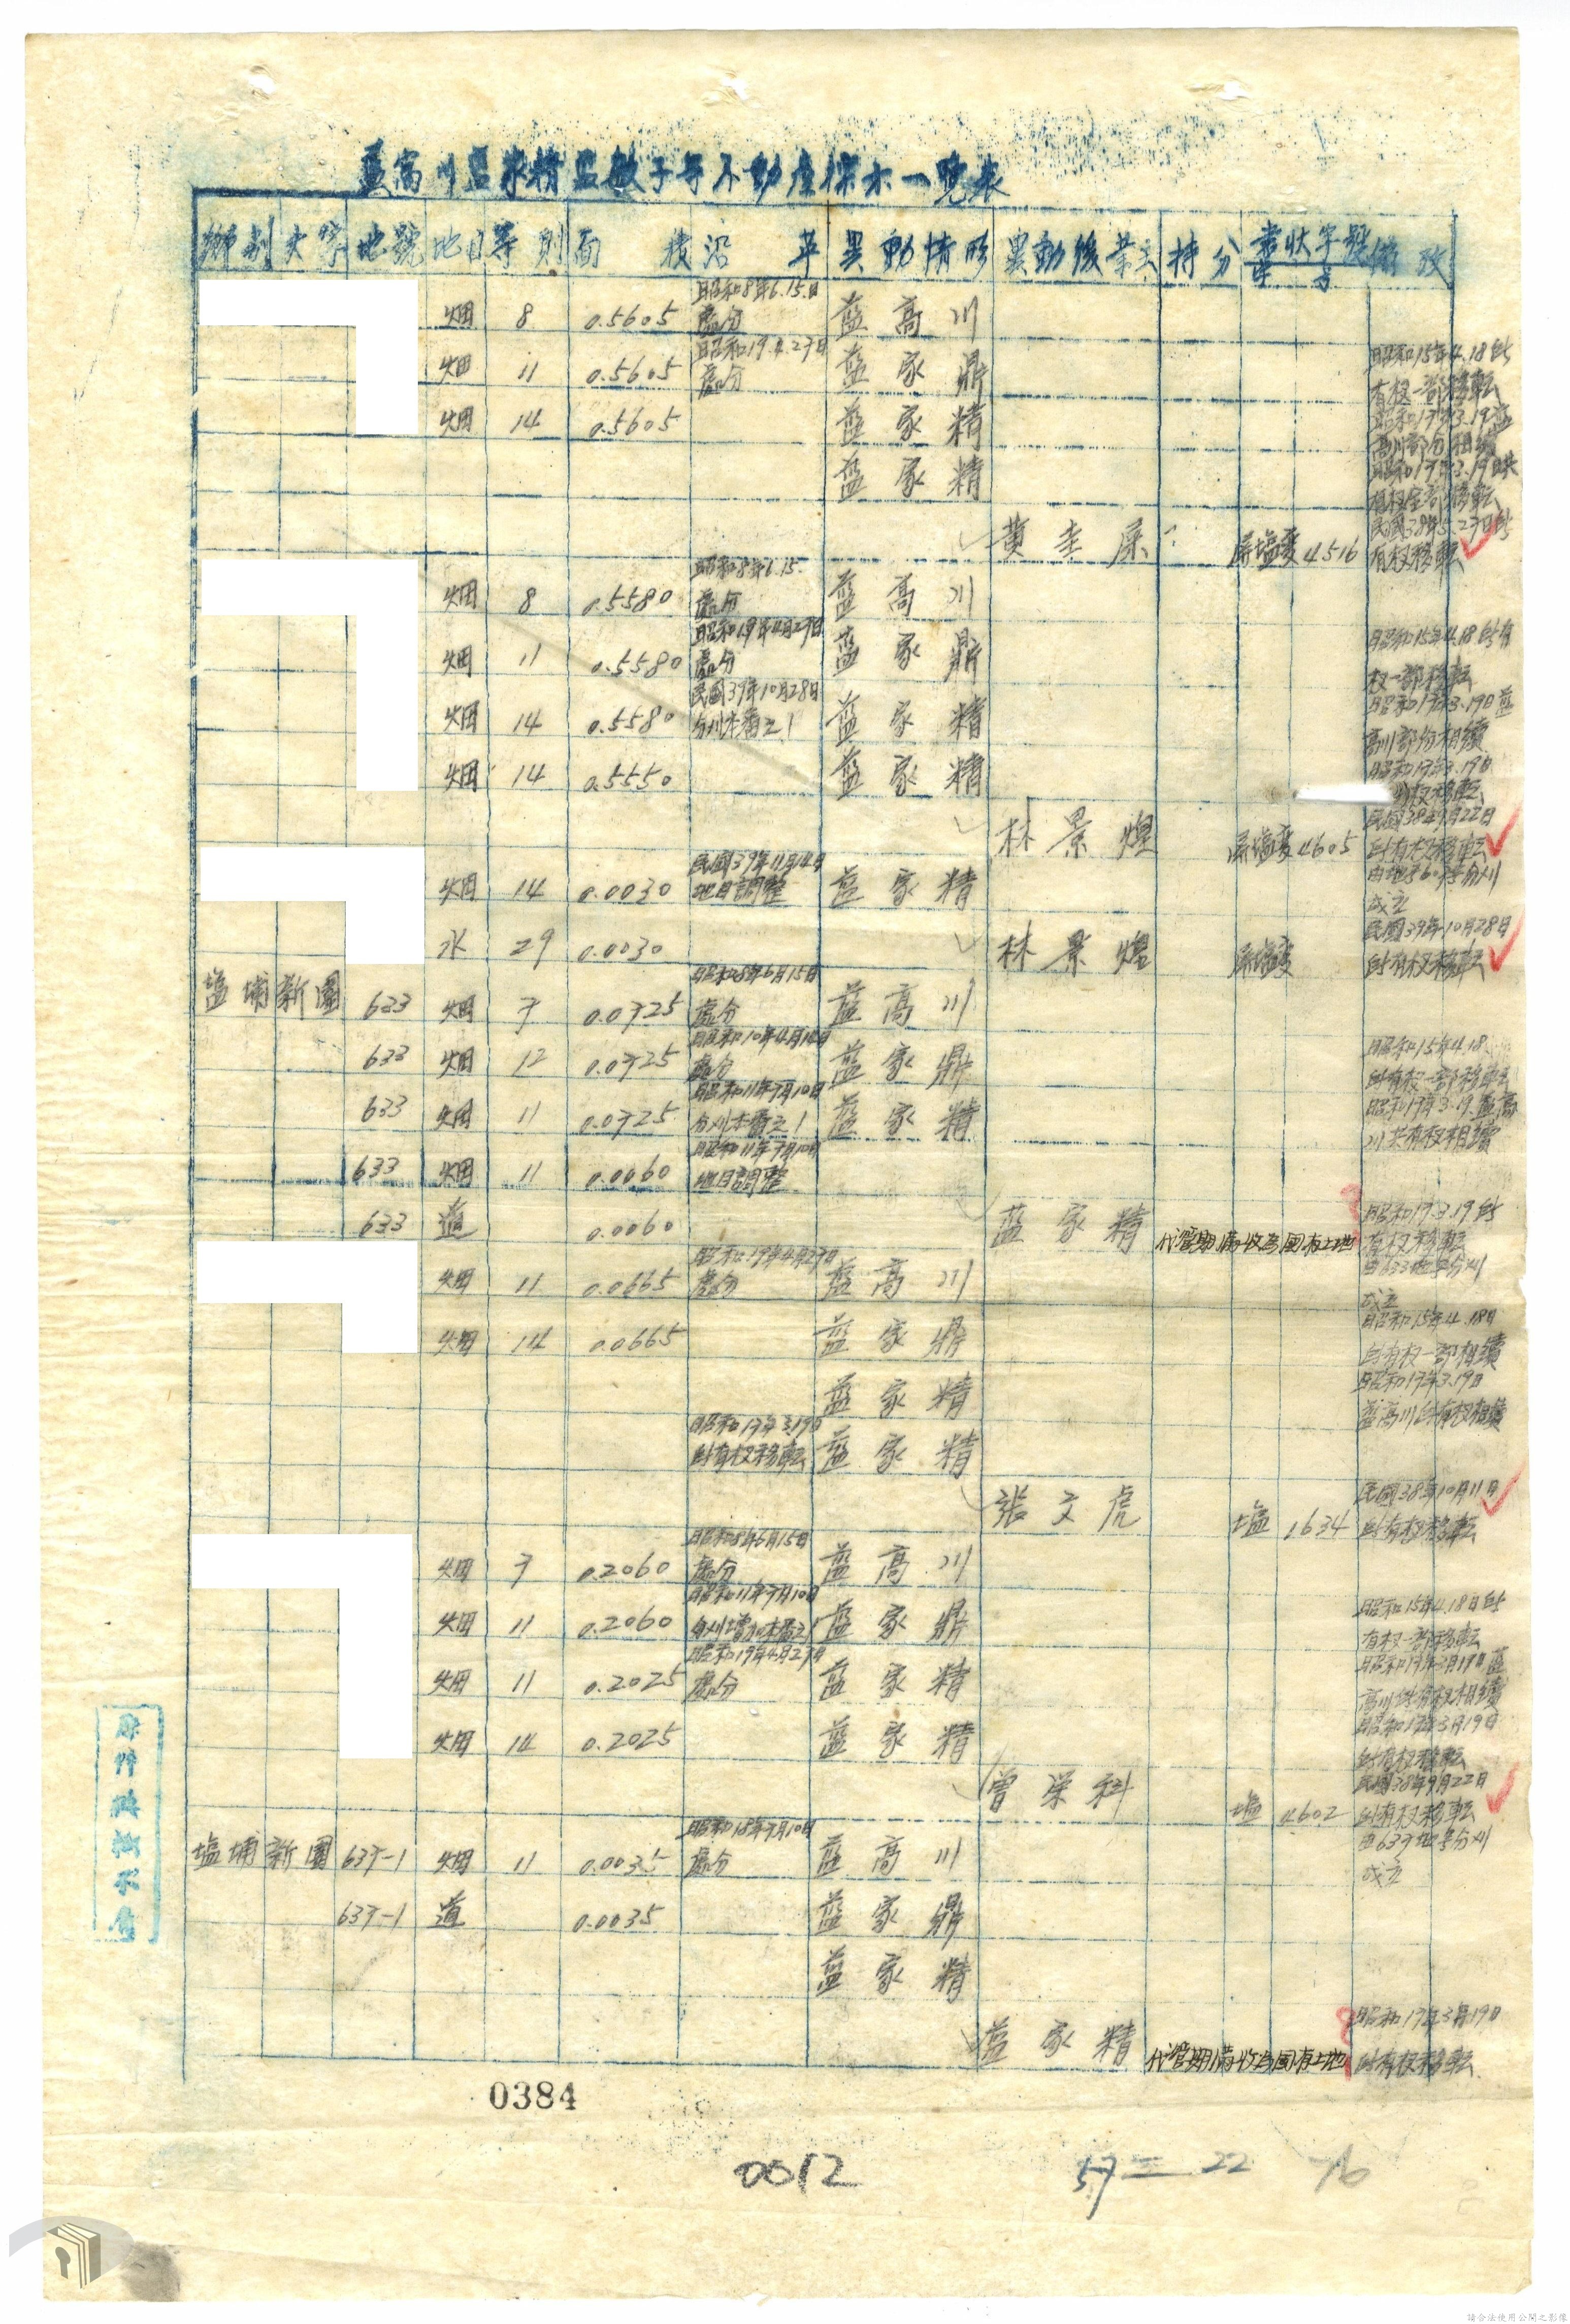 藍高川藍家精藍敏子等不動產探木一覽表
鄉別 大字 地號 地目 等則 面積 沿革 異動情形 異動後業主 持分 書狀字號 備攷
昭和8年6.15日
畑 8 0.5605 處分 藍高川
昭和19.4.27日
畑 11 0.5605 處分 藍家鼎 昭和15年4.18日所
有权一部移転
畑 14 0.5605 藍家精 昭和17年3.19藍
高川部分相續
藍家精 昭和17年3.19日共
有权全部移転
民國38年5.27日所
黃圭 屏塩変4516 有权移転
昭和8年6.15.
畑 8 0.5580 處分 藍高川
昭和19年4月27日
畑 11 0.5580 處分 藍家鼎 昭和15年4.18日所有
权一部移転
民國39年10月28日
畑 14 0.5580 分刈本番之1 藍家精 昭和17年3.19日藍
高川部份相續
畑 14 0.5550 藍家精 昭和17年3.19日
权移転
民國38年9月22日
林景煌 屏塩変4605 所有权移転
民國39年11月14日
畑 14 0.0030 地目調整 藍家精 成立
民國39年10月28日
水 29 0.0030 林景煌 屏塩変 所有权移転
昭和8年6月15日
塩埔 新圍 633 畑 7 0.0725 處分 藍高川
昭和10年4月14日
633 畑 12 0.0725 處分 藍家鼎 昭和15年4.18.
所有权一部移転
昭和11年7月10日
633 畑 11 0.0725 分刈本番之1 藍家精 昭和17年3.19.藍高
川共有权相續
昭和11年7月10日
633 畑 11 0.0060 地目調整
633 道 0.0060 藍家精 代管期滿收為國有土地 昭和17.3.19日所
有权移転
昭和19年4月27日 由633地号分刈
畑 11 0.0665 處分 藍高川 成立
畑 14 0.0665 藍家鼎 昭和15年4.18日
所有权一部相續
藍家精 昭和17年3.19日
藍高川所有权相續
昭和17年3.19日
所有权移転 藍家精
張文虎 塩 1634 民國38年10月11日
所有权移転
昭和8年6月15日
畑 7 0.2060 處分 藍高川
昭和11年7月10日
畑 11 0.2060 藍家鼎 昭和15年4.18日所
有权一部移転
昭和19年4月27日
畑 11 0.2025 處分 藍家精 昭和17年3月19日藍
高川所有权相續
畑 14 0.2025 藍家精 昭和17年3月19日
所有权移転
曾栄科 塩 4602 民國38年9月22日
所有权移転
昭和18年7月10日 由637地号分刈
塩埔 新圍 637-1 畑 11 0.0035 處分 藍高川 成立
637-1 道 0.0035 藍家鼎
藍家精
藍家精 代管期滿收為國有土地 昭和17年3月19日
所有权移転
0384
0012
57二 22 76
請合法使用公開之影像